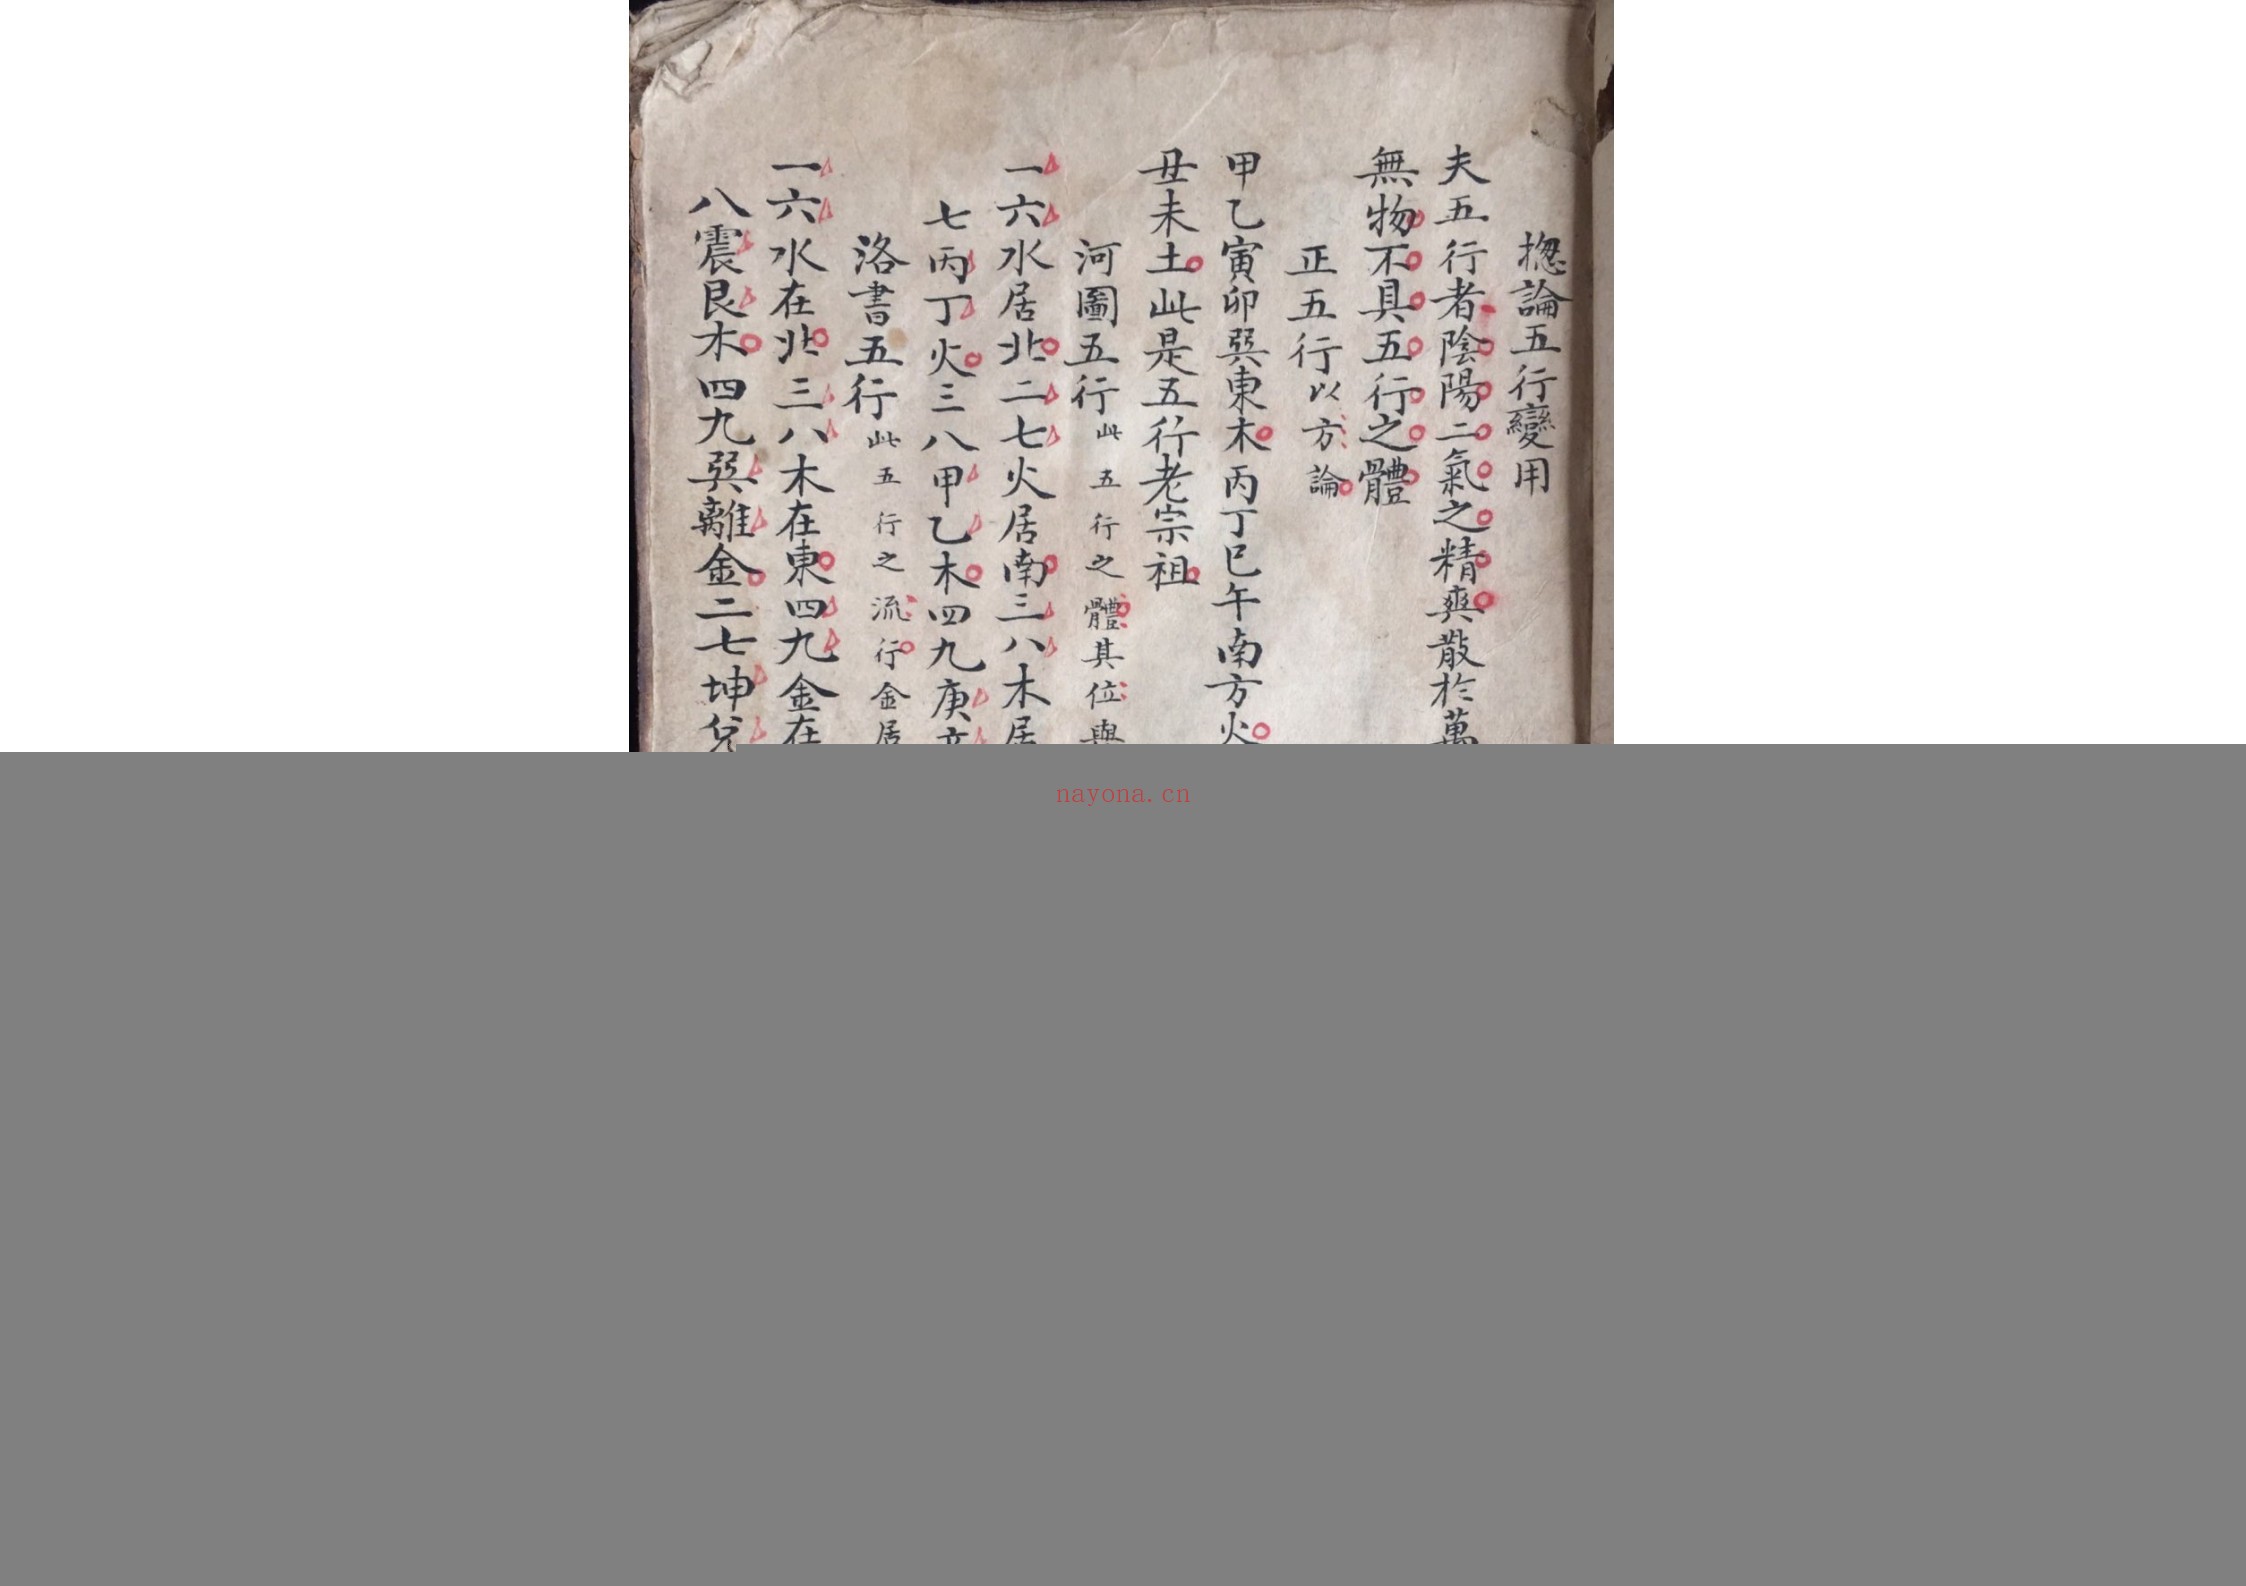 揔論五行變用
夫五行者陰陽二氣之精爽散於萬
無物不具五行之體
正五行以方論
甲乙寅卯巽東木丙丁巳午南方火
丑未土此是五行老宗祖
河圖五行此五行之體其位與
一六水居北二七火居南三八木居
七丙丁火三八甲乙木四九庚辛
洛書五行此五行之流行金居
一六水在北三八木在東四九金在
八震艮木四九巽離金二七坤兌
nayona.cn